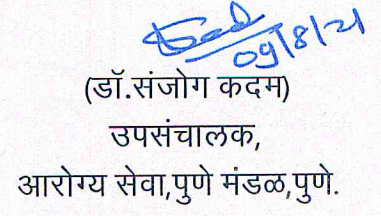 09/8/21
(डॉ.संजोग कदम)
उपसंचालक,
आरोग्य सेवा,पुणे मंडळ,पुणे.